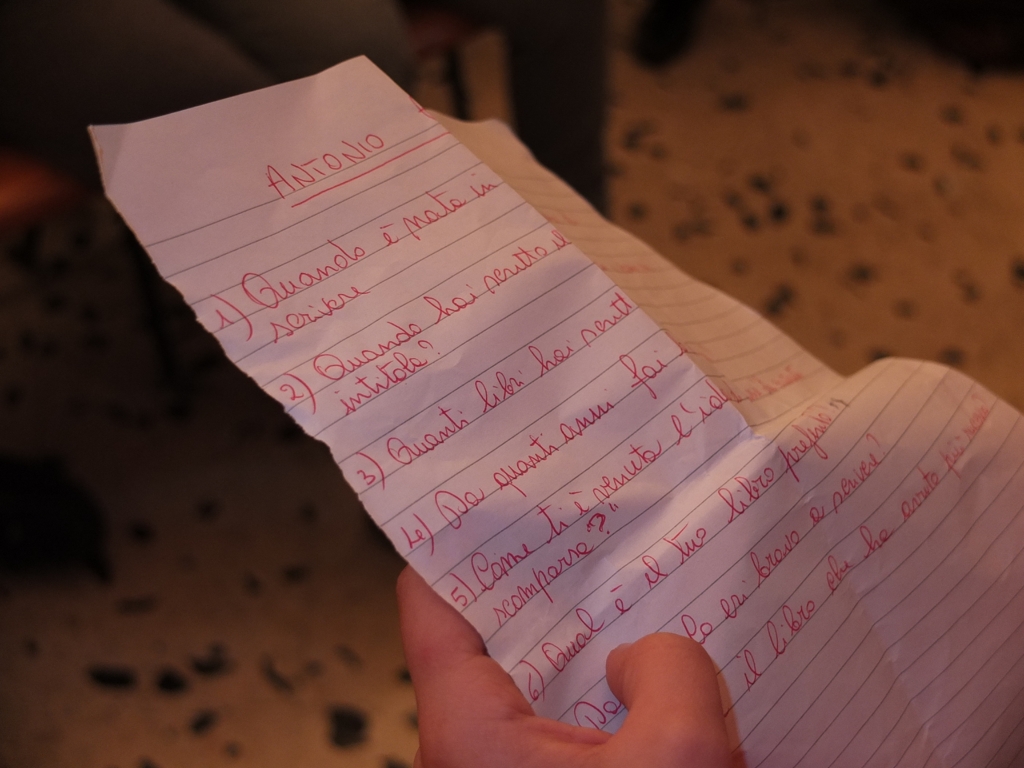 ANTONIO
1) Quando è nata in
scrivere
2) Quando hai scritto il
intitola?
3) Quanti libri hai scritt
4) Da quanti anni fai
5) Come ti è venuta l'ide
scomparsa?"
6) Qual è il tuo libro preferito
eri bravo a scrivere?
il libro che ha avuto più